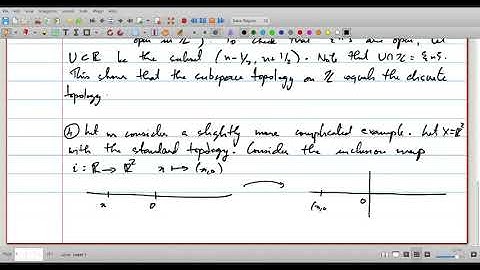 open in ℤ) To check that {n}'s are open, let
U ⊂ ℝ be the subset (n-1/2, n+1/2). Note that U∩ℤ = {n}.
This shows that the subspace topology on ℤ equals the discrete
topology.
④ Let us consider a slightly more complicated example. Let X=ℝ²
with the standard topology. Consider the inclusion map
i : ℝ → ℝ² x ↦ (x,0)
x 0 (x,0 0